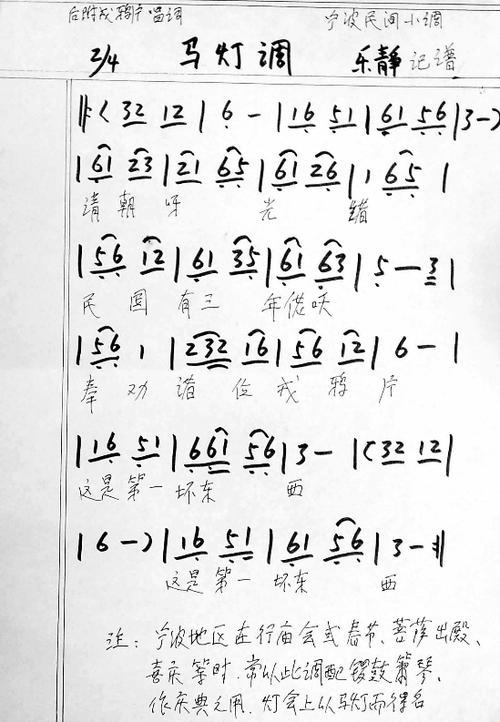 后附戒鸦片唱词 宁波民间小调
2/4 马灯调 乐静记谱
‖<32 12|6 -|16 51|61 56|3->
|61 23|21 65|61 26|1 65|
清朝呀 光绪
|56 12|61 35|61 63|5-3|
民国有三年佬呋
|56 1|232 16|56 12|6-|
奉劝诸位戒鸦片
|16 51|661 56|3-|<32 12|
这是第一坏东西
|6->|16 51|61 56|3-‖
这是第一坏东西
注：宁波地区在行庙会或春节、菩萨出殿、
喜庆等时.常以此调配锣鼓箫琴、
作庆典之用.灯会上以马灯而得名